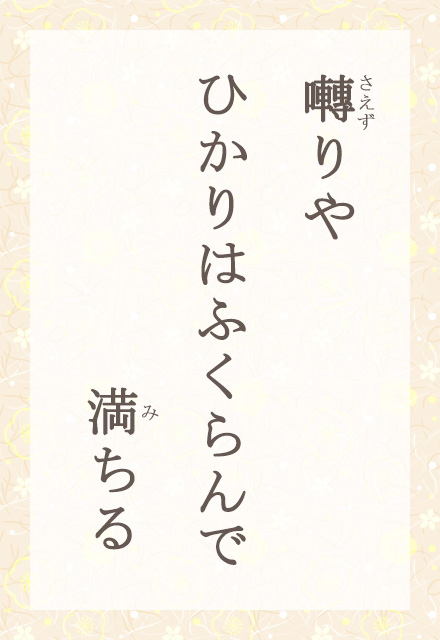 囀りや
さえず
ひかりはふくらんで
満ちる
み